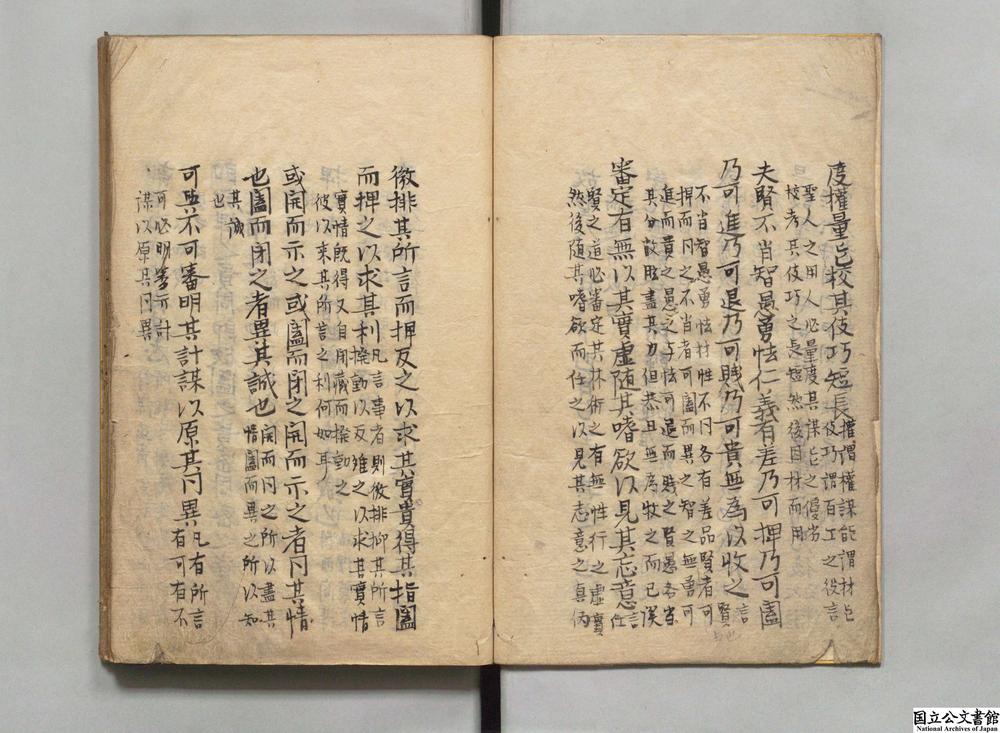 度權量能校其伎巧短長權謂權謀能謂材能
伎巧謂百工之役言
聖人之用人必量度其謀能之優劣
校考其伎巧之長短然後因材而用
夫賢不肖智愚勇怯仁義有差乃可捭乃可闔
乃可進乃可退乃可賤乃可貴無為以牧之言賢
不肖智愚勇怯材性不同各有差品賢者可
捭而同之不肖者可闔而異之智之與勇可
進而貴之愚之與怯可退而賤之賢愚各當
其分故敢盡其力但恭且無為牧之而已矣
審定有無以其實虛隨其嗜欲以見其志意言任
賢之道必審定其材術之有無性行之虛實
然後隨其嗜欲而任之以見其志意之真偽
微排其所言而捭反之以求其實貴得其指闔
而捭之以求其利凡言事者則微排抑其所言
撥動以反難之以求其實情
實情既得又自閉藏而撥動之
彼以來其所言之利何如耳
或開而示之或闔而閉之開而示之者同其情
也闔而閉之者異其誠也開而同之所以盡其
情闔而異之所以知
其誠
也
可與不可審明其計謀以原其同異凡有所言
有可有不
可必明審其計
謀以原其同異
国立公文書館
National Archives of Japan